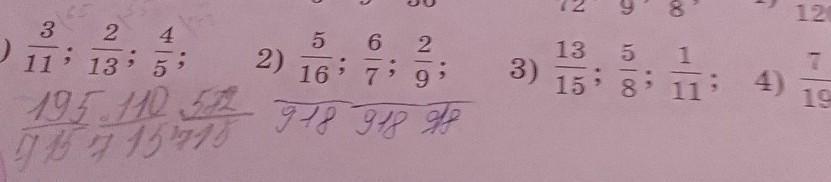 72 9 8 12
) 3/11; 2/13; 4/5; 2) 5/16; 6/7; 2/9; 3) 13/15; 5/8; 1/11; 4) 7/19
195/715 110/715 572/715 918 918 918